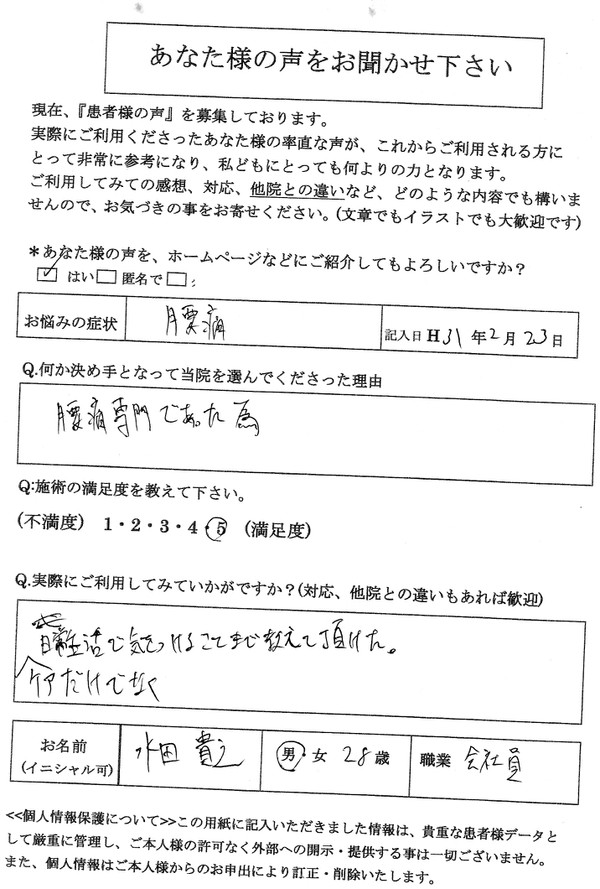 あなた様の声をお聞かせ下さい
現在、『患者様の声』を募集しております。
実際にご利用くださったあなた様の率直な声が、これからご利用される方に
とって非常に参考になり、私どもにとっても何よりの力となります。
ご利用してみての感想、対応、他院との違いなど、どのような内容でも構いま
せんので、お気づきの事をお寄せください。(文章でもイラストでも大歓迎です)
*あなた様の声を、ホームページなどにご紹介してもよろしいですか?
☑ はい □ 匿名で □;
お悩みの症状 腰痛 記入日 H31 年2月 23日
Q.何か決め手となって当院を選んでくださった理由
腰痛専門であった為
Q:施術の満足度を教えて下さい。
(不満度) 1・2・3・4・5 (満足度)
Q.実際にご利用してみていかがですか?(対応、他院との違いもあれば歓迎)
生活で気をつけることまで教えて頂けた。
ケアだけでなく
お名前
(イニシャル可) 水田 貴之 男・女 28歳 職業 会社員
<<個人情報保護について>>この用紙に記入いただきました情報は、貴重な患者様データと
して厳重に管理し、ご本人様の許可なく外部への開示・提供する事は一切ございません。
また、個人情報はご本人様からのお申出により訂正・削除いたします。